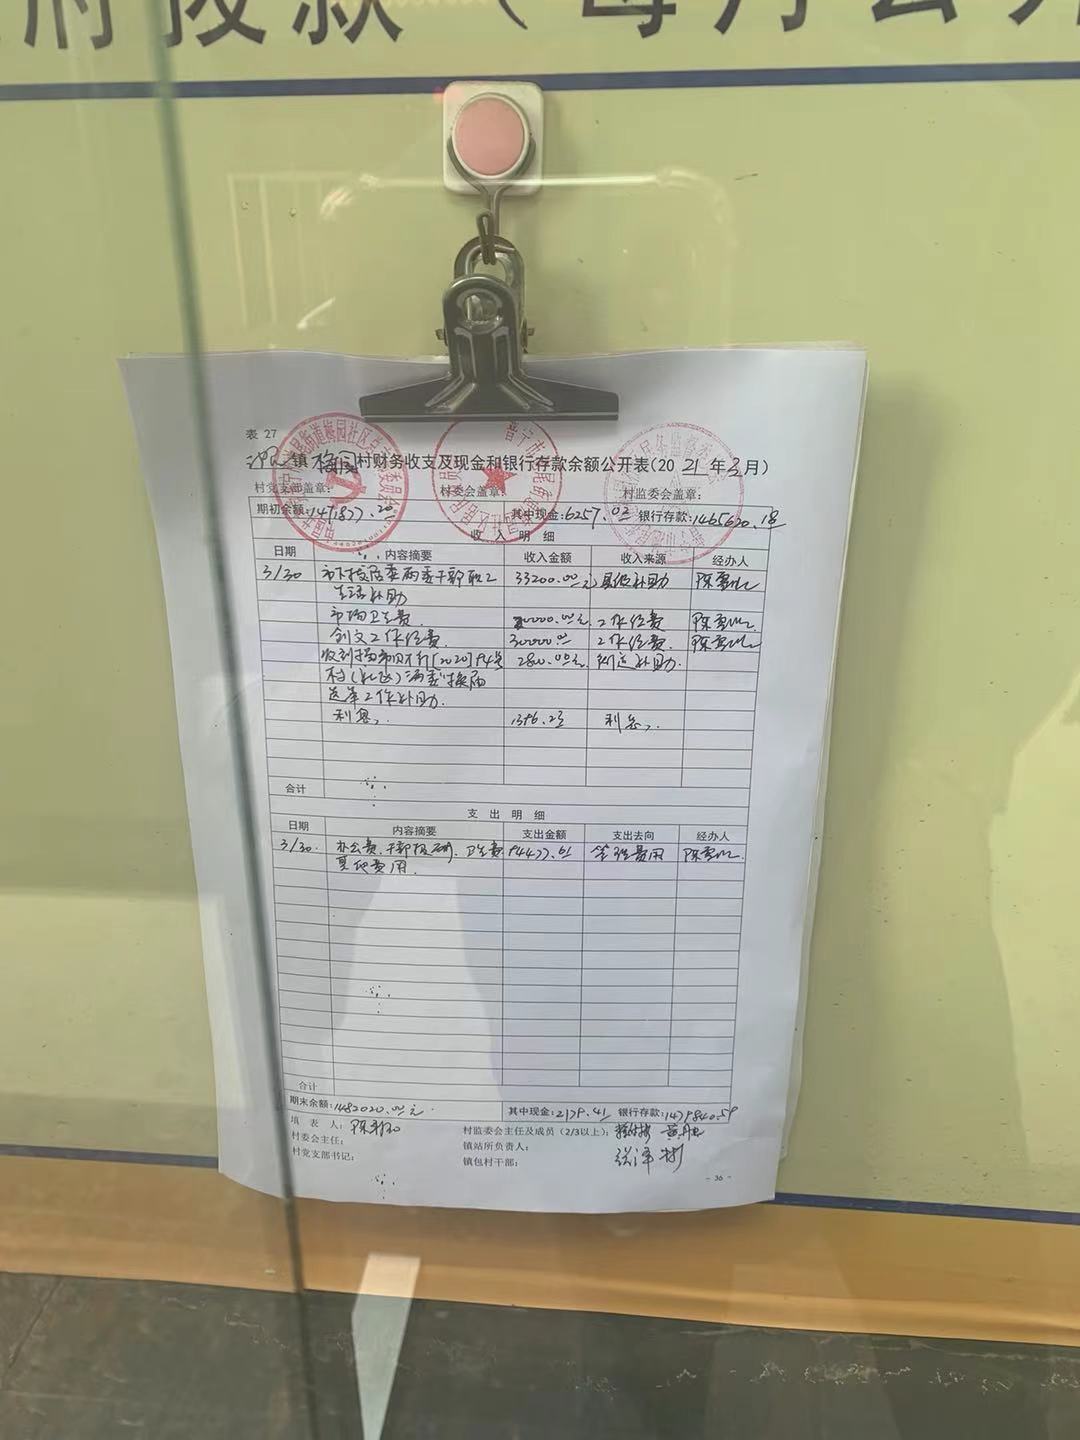 府拨款（每月公开
表 27
镇 梅园 村财务收支及现金和银行存款余额公开表(20 21 年 3 月)
村党支部盖章: 村委会盖章: 村监委会盖章:
期初余额: 1471877.20 其中现金: 6257.02 银行存款: 1465620.18
收 入 明 细
日期 内容摘要 收入金额 收入来源 经办人
3/30 市下拨居委两委干部职工 33200.00元 县级补助
生活补助
市场卫生费 工作经费
创文工作经费 30000.00 工作经费
[2020] 2800.00元 街道补助
村(社区)两委换届
选举工作补助
利息 1396.23 利息
合计
支 出 明 细
日期 内容摘要 支出金额 支出去向 经办人
3/30. 办公费、干部报酬、卫生费 管理费用
其他费用
合计
期末余额: 1482020.00元 其中现金: 2179.41 银行存款: 1479840.59
填 表 人: 村委会主任及成员 (2/3以上):
村委会主任: 镇站所负责人:
村党支部书记: 镇包村干部:
- 36 -